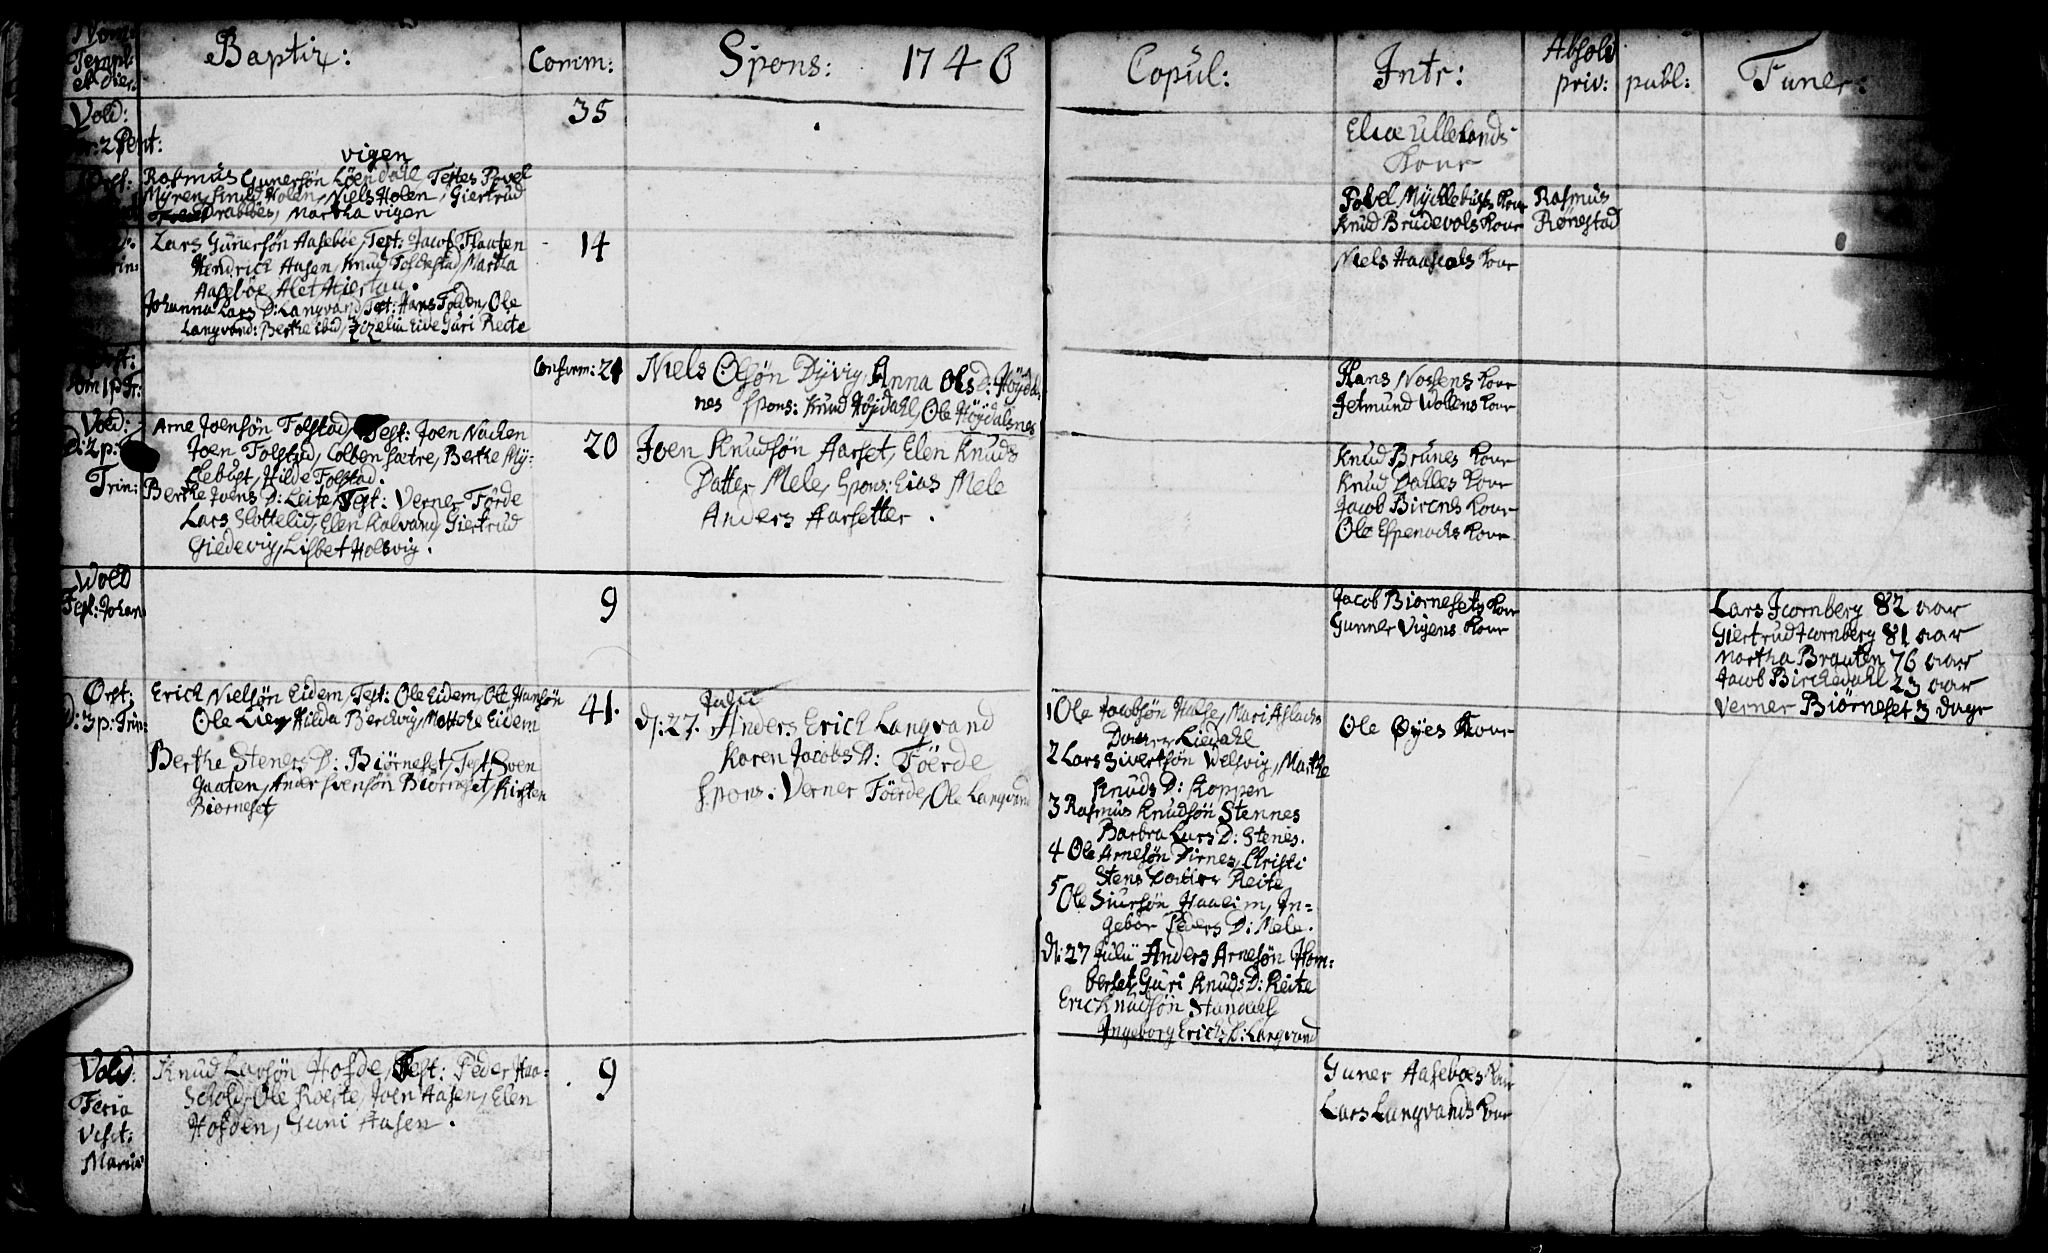 Nom:
Templ:
et dier:
Baptiz:
Comm:
Spons: 1740
Copul:
Intr:
Absolv
priv: publ:
Funer:
Vold:
2 Pent:
35
Elia Ullelands
Kone
Orst:
vigen
Rasmus Gunersön Löendahl Testes Povel
Myren, Knud Holen, Niels Holen, Giertrud
Drabløs, Martha vigen
Povel Myklebusts Kone
Knud Brudevols Kone
Rasmus
Rønestad
Lars Gunersön Aasebøe, Test: Jacob Flaaten
Hendrich Aasen, Knud Folkestad, Martha
Aasebøe, Alet Hiertau.
Johanna Lars D: Langvand, Test: Hans Folden, Ole
Langvand: Berthe ibid, Zizelia Eide Guri Reite
14
Niels Haaskols Kone
Orst:
Dom 1 p Tr:
Confirm: 21
Niels Olsön Dyvig, Anna Ols D: Höjdal
nes Spons: Knud Höjdahl, Ole Höjdalsnes
Hans Noslens Kone
Jetmund Wollens Kone
Vold:
D: 2 p:
Trin:
Arne Joensön Folstad, Test: Joen Nachen
Joen Folstad, Colben Sætre, Berthe My-
clebust, Hilde Folstad.
Berthe Ivers D: Leite, Test: Verner Förde
Lars Slottelid, Elen Kalvand, Giertrud
Giedevig, Lisbet Holsvig.
20
Joen Knudsön Aarset, Elen Knuds
Datter Mele, Spons: Elias Mele
Anders Aarsetter.
Knud Brunes Kone
Knud Dahles Kone
Jacob Birchs Kone
Ole Espenachs Kone
Wold
Fest: Johan
9
Jacob Biørnesets Kone
Gunner Vigens Kone
Lars Hornberg 82 aar
Giertrud Hornberg 81 aar
Martha Brauten 76 aar
Jacob Birchedahl 23 aar
Verner Biørneset 3 dage
Orst:
D: 3 p: Trin:
Erich Nielsön Eidem, Test: Ole Eidem, Ole Hansön
Ole Lien, Hilda Berchvig, Mette Eidem
Berthe Steners D: Biörneset, Test: Sven
Gaaten, Ander Svensön Biörneset, Kirsten
Biörneset
41.
Julii
D: 27. Anders Erich Langvand
Karen Jacobs D: Föerde
Spons: Verner Föerde, Ole Langvand
1 Ole Jacobsön Halse, Mari Aslachs
Datter Liedahl
2 Lars Sivertsön Welsvig, Marthe
Knuds D: Koppen
3 Rasmus Knudsön Stennes
Barbra Lars D: Stenes.
4 Ole Arnesön Dirnes, Christi
Stens Datter Reite
5 Ole Siursön Haaeim, In-
gebor Peders D: Mele.
D: 27 Julii Anders Arnesön Hom:
berset, Guri Knuds D: Reite
Erich Knudsön Standahl
Ingeborg Erichs D: Langvand
Ole Øyes Kone
Vold:
Feria
Visit:
Mariæ
Knud Larsön Hofde, Test: Peder Haa-
Schold, Ole Roeite, Joen Aasen, Elen
Hofden, Guni Aasen.
9
Guner Aasebøes Kone
Lars Langvands Kone